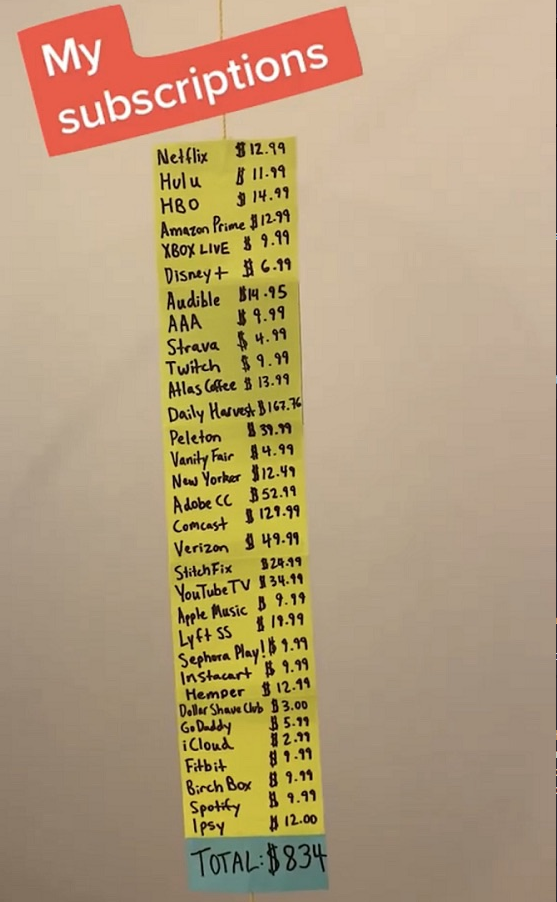 My
subscriptions
Netflix $12.99
Hulu $11.99
HBO $14.99
Amazon Prime $12.99
XBOX LIVE $9.99
Disney+ $6.99
Audible $14.95
AAA $9.99
Strava $4.99
Twitch $9.99
Atlas Coffee $13.99
Daily Harvest $167.76
Peleton $39.99
Vanity Fair $4.99
New Yorker $12.49
Adobe CC $52.99
Comcast $129.99
Verizon $49.99
StitchFix $24.99
YouTube TV $34.99
Apple Music $9.99
Lyft SS $19.99
Sephora Play! $9.99
Instacart $9.99
Hemper $12.99
Dollar Shave Club $3.00
GoDaddy $5.99
iCloud $2.99
Fitbit $9.99
Birch Box $9.99
Spotify $9.99
Ipsy $12.00
TOTAL: $834